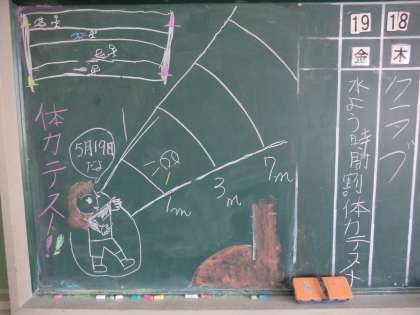 体力テスト!!
5月19日
だよ
1m
3m
7m
19
金
水よう時間割体力テスト
18
木
クラブ